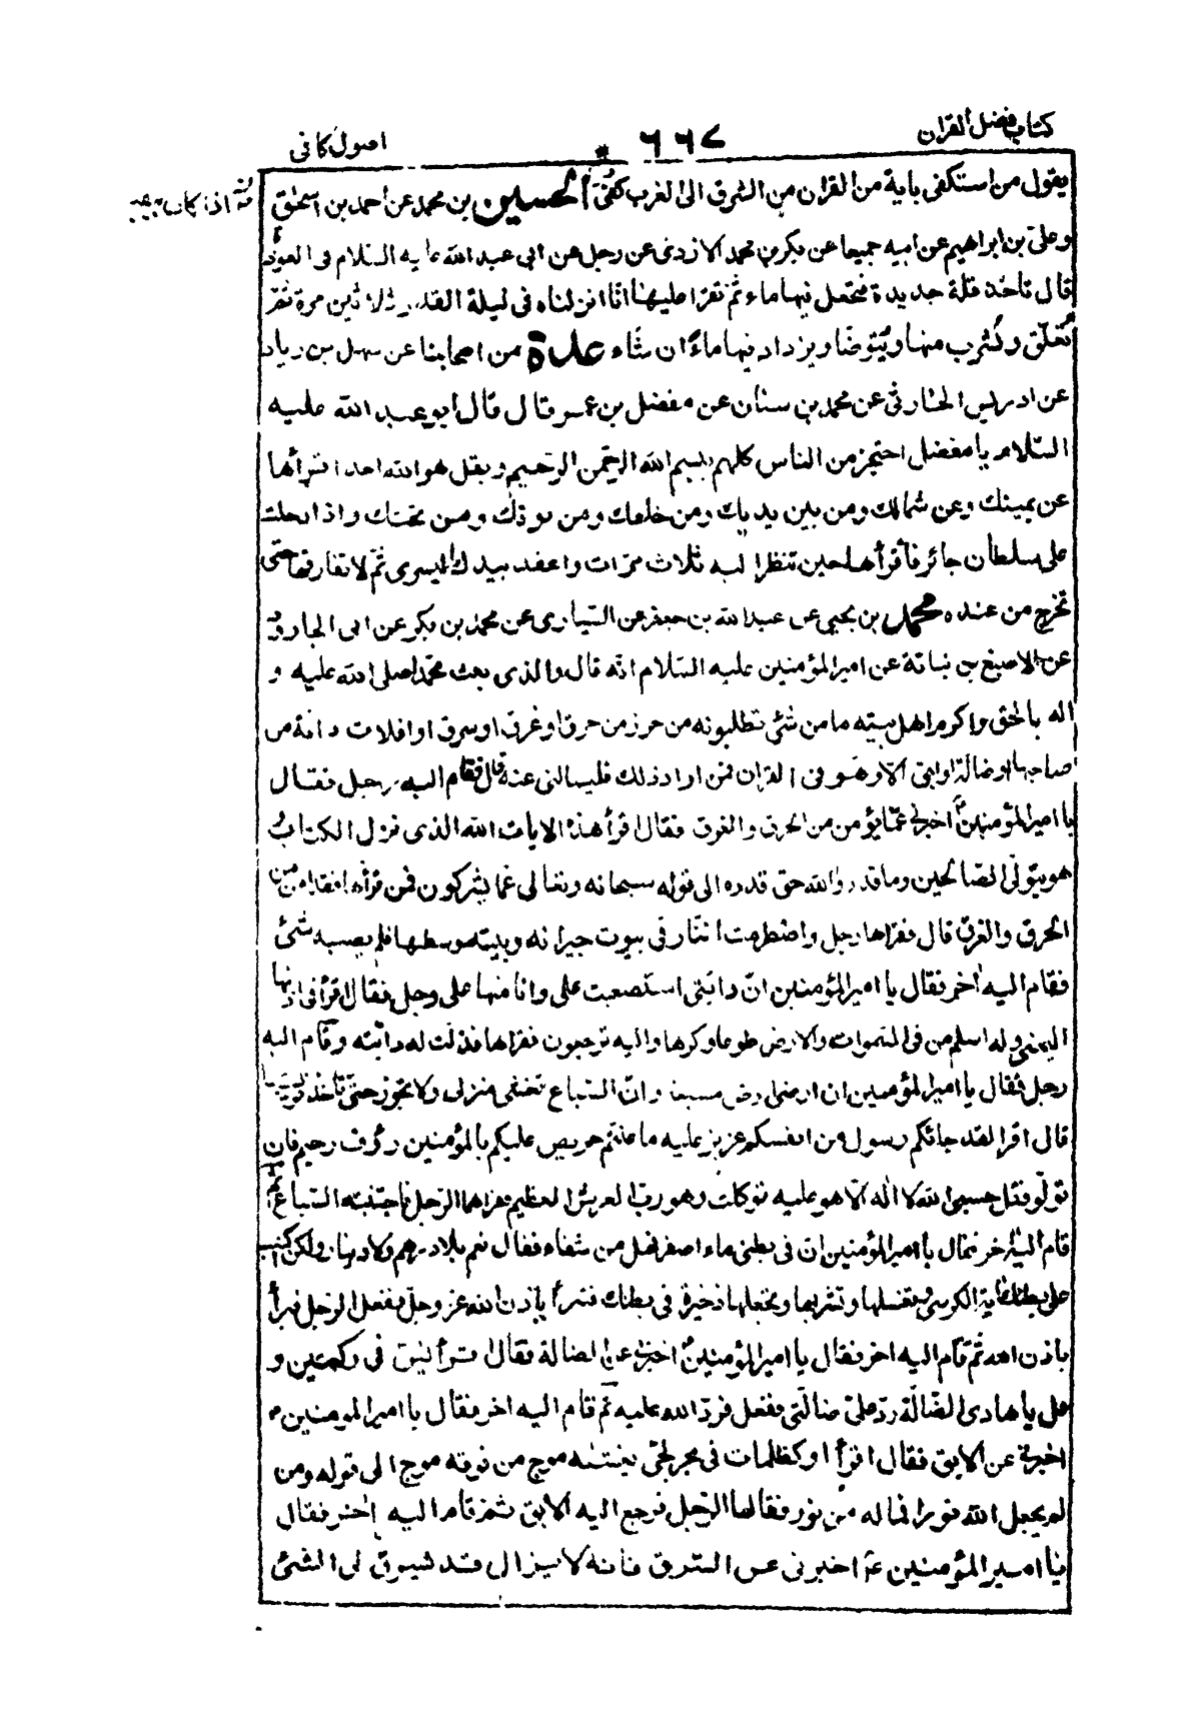 كتاب فضل القران
٦٦٧
اصول كافى
يقول من استكفى باية من القران من الشرق الى الغرب كفى الحسين بن محمد عن احمد بن اسحق
اذا كان بيقين
وعلى بن ابراهيم عن ابيه جميعا عن بكر بن محمد الازدى عن رجل عن ابى عبد الله عليه السلام فى العوذة
قال تاخذ قلة جديدة فتجعل فيها ماء ثم تقرأ عليها انا انزلناه فى ليلة القدر ثلاثين مرة ثم
تعلق وتشرب منها ويتوضا ويزداد فيها ماء ان شاء عدة من اصحابنا عن سهل بن زياد
عن ادريس الحارثى عن محمد بن سنان عن مفضل بن عمر قال قال ابو عبد الله عليه
السلام يا مفضل احتجز من الناس كلهم ببسم الله الرحمن الرحيم وبقل هو الله احد اقرأها
عن يمينك وعن شمالك ومن بين يديك ومن خلفك ومن فوقك ومن تحتك واذا دخلت
على سلطان جائر فأقرأها حين تنظر اليه ثلاث مرات واعقد بيدك اليسرى ثم لا تفارقها حتى
تخرج من عنده محمد بن يحيى عن عبد الله بن جعفر عن السيارى عن محمد بن بكر عن ابى الجارود
عن الاصبغ بن نباتة عن امير المؤمنين عليه السلام انه قال والذى بعث محمدا صلى الله عليه و
اله بالحق واكرم اهل بيته ما من شئ تطلبونه من حرز من حرق او غرق او سرق او افلات دابة من
صاحبها او ضالة او ابق الا وهو فى القران فمن اراد ذلك فليسالنى عنه قال فقام اليه رجل فقال
يا امير المؤمنين اخبرنى عما يؤمن من الحرق والغرق فقال اقرأ هذه الايات الله الذى نزل الكتاب و
هو يتولى الصالحين وما قدروا الله حق قدره الى قوله سبحانه وتعالى عما يشركون فمن قرأها فقد امن من
الحرق والغرق قال فقرأها رجل واضطرمت النار فى بيوت جيرانه وبيته وسطها فلم يصبه شئ
فقام اليه اخر فقال يا امير المؤمنين ان دابتى استصعبت على وانا منها على وجل فقال اقرأ فى اذنها
اليمنى وله اسلم من فى السموات والارض طوعا وكرها واليه ترجعون فقرأها فذلت له دابته وقام اليه
رجل فقال يا امير المؤمنين ان ارضى ارض مسبعة وان السباع تغشى منزلى ولا تجوز حتى تاخذ فريستها
قال اقرا لقد جائكم رسول من انفسكم عزيز عليه ما عنتم حريص عليكم بالمؤمنين رؤف رحيم فان
تولوا فقل حسبى الله لا اله الا هو عليه توكلت وهو رب العرش العظيم فقراهما الرجل فاجتنبته السباع ثم
قام اليه اخر فقال يا امير المؤمنين ان فى بطنى ماء اصفر فهل من شفاء فقال نعم بلا درهم ولا دينار ولكن اكتب
على بطنك اية الكرسى وتغسلها وتشربها وتجعلها ذخيرة فى بطنك فتبرأ باذن الله عز وجل ففعل الرجل فبرأ
باذن الله ثم قام اليه اخر فقال يا امير المؤمنين اخبرنى عن الضالة فقال اقرأ يس فى ركعتين و
قل يا هادى الضالة رد على ضالتى ففعل فرد الله عليه ثم قام اليه اخر فقال يا امير المومنين
اخبرنى عن الابق فقال اقرأ او كظلمات فى بحر لجى يغشيه موج من فوقه موج الى قوله ومن
لم يجعل الله له نورا فما له من نور فقالها الرجل فرجع اليه الابق ثم قام اليه اخر فقال
يا امير المؤمنين اخبرنى عن السرق فانه لا يزال قد يسرق لى الشئ